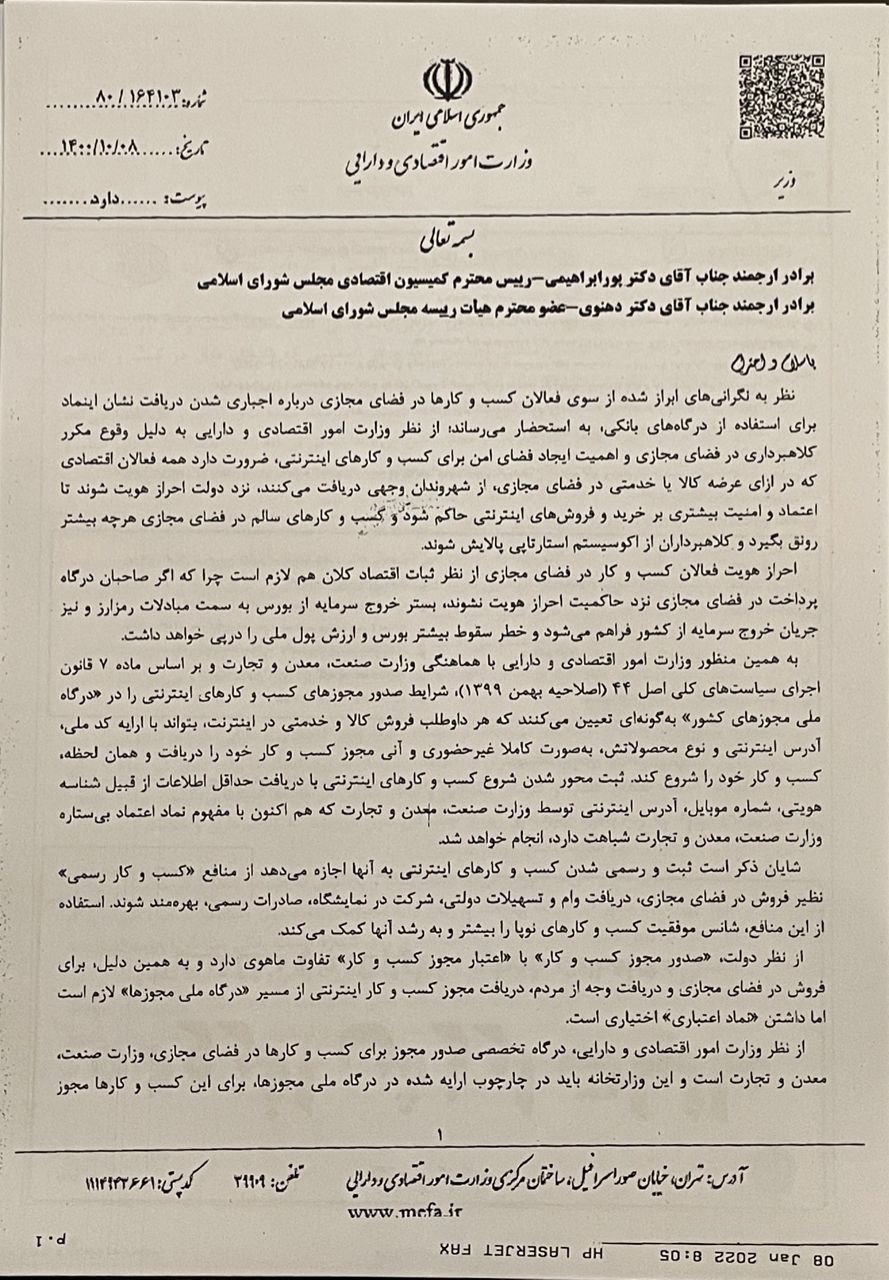 جمهوری اسلامی ایران
وزارت امور اقتصادی و دارایی
وزیر
شماره: ۸۰/۱۶۴۱۰۳
تاریخ: ۱۴۰۰/۱۰/۰۸
پیوست: دارد
بسمه تعالی
برادر ارجمند جناب آقای دکتر پورابراهیمی–رییس محترم کمیسیون اقتصادی مجلس شورای اسلامی
برادر ارجمند جناب آقای دکتر دهنوی–عضو محترم هیأت رییسه مجلس شورای اسلامی
با سلام و احترام
نظر به نگرانی‌های ابراز شده از سوی فعالان کسب و کارها در فضای مجازی درباره اجباری شدن دریافت نشان اینماد
برای استفاده از درگاه‌های بانکی، به استحضار می‌رساند؛ از نظر وزارت امور اقتصادی و دارایی به دلیل وقوع مکرر
کلاهبرداری در فضای مجازی و اهمیت ایجاد فضای امن برای کسب و کارهای اینترنتی، ضرورت دارد همه فعالان اقتصادی
که در ازای عرضه کالا یا خدمتی در فضای مجازی، از شهروندان وجهی دریافت می‌کنند، نزد دولت احراز هویت شوند تا
اعتماد و امنیت بیشتری بر خرید و فروش‌های اینترنتی حاکم شود و کسب و کارهای سالم در فضای مجازی هرچه بیشتر
رونق بگیرد و کلاهبرداران از اکوسیستم استارتاپی پالایش شوند.
احراز هویت فعالان کسب و کار در فضای مجازی از نظر ثبات اقتصاد کلان هم لازم است چرا که اگر صاحبان درگاه
پرداخت در فضای مجازی نزد حاکمیت احراز هویت نشوند، بستر خروج سرمایه از بورس به سمت مبادلات رمزارز و نیز
جریان خروج سرمایه از کشور فراهم می‌شود و خطر سقوط بیشتر بورس و ارزش پول ملی را درپی خواهد داشت.
به همین منظور وزارت امور اقتصادی و دارایی با هماهنگی وزارت صنعت، معدن و تجارت و بر اساس ماده ۷ قانون
اجرای سیاست‌های کلی اصل ۴۴ (اصلاحیه بهمن ۱۳۹۹)، شرایط صدور مجوزهای کسب و کارهای اینترنتی را در «درگاه
ملی مجوزهای کشور» به‌گونه‌ای تعیین می‌کنند که هر داوطلب فروش کالا و خدمتی در اینترنت، بتواند با ارایه کد ملی،
آدرس اینترنتی و نوع محصولاتش، به‌صورت کاملا غیرحضوری و آنی مجوز کسب و کار خود را دریافت و همان لحظه،
کسب و کار خود را شروع کند. ثبت محور شدن شروع کسب و کارهای اینترنتی با دریافت حداقل اطلاعات از قبیل شناسه
هویتی، شماره موبایل، آدرس اینترنتی توسط وزارت صنعت، معدن و تجارت که هم اکنون با مفهوم نماد اعتماد بی‌ستاره
وزارت صنعت، معدن و تجارت شباهت دارد، انجام خواهد شد.
شایان ذکر است ثبت و رسمی شدن کسب و کارهای اینترنتی به آنها اجازه می‌دهد از منافع «کسب و کار رسمی»
نظیر فروش در فضای مجازی، دریافت وام و تسهیلات دولتی، شرکت در نمایشگاه، صادرات رسمی، بهره‌مند شوند. استفاده
از این منافع، شانس موفقیت کسب و کارهای نوپا را بیشتر و به رشد آنها کمک می‌کند.
از نظر دولت، «صدور مجوز کسب و کار» با «اعتبار مجوز کسب و کار» تفاوت ماهوی دارد و به همین دلیل، برای
فروش در فضای مجازی و دریافت وجه از مردم، دریافت مجوز کسب و کار اینترنتی از مسیر «درگاه ملی مجوزها» لازم است
اما داشتن «نماد اعتباری» اختیاری است.
از نظر وزارت امور اقتصادی و دارایی، درگاه تخصصی صدور مجوز برای کسب و کارها در فضای مجازی، وزارت صنعت،
معدن و تجارت است و این وزارتخانه باید در چارچوب ارایه شده در درگاه ملی مجوزها، برای این کسب و کارها مجوز
۱
آدرس: تهران، خیابان صوراسرافیل، ساختمان مرکزی وزارت امور اقتصادی و دارایی تلفن: ۳۹۹۰۹ کد پستی: ۱۱۱۴۹۴۳۶۶۱
www.mefa.ir
08 Jan 2022 8:05 HP LASERJET FAX p.1